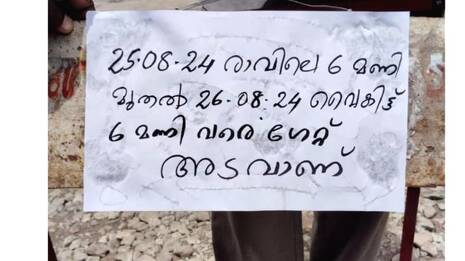 25-08-24 രാവിലെ 6 മണി
മുതൽ 26-08-24 വൈകിട്ട്
6 മണി വരെ ഗേറ്റ്
അടവാണ്